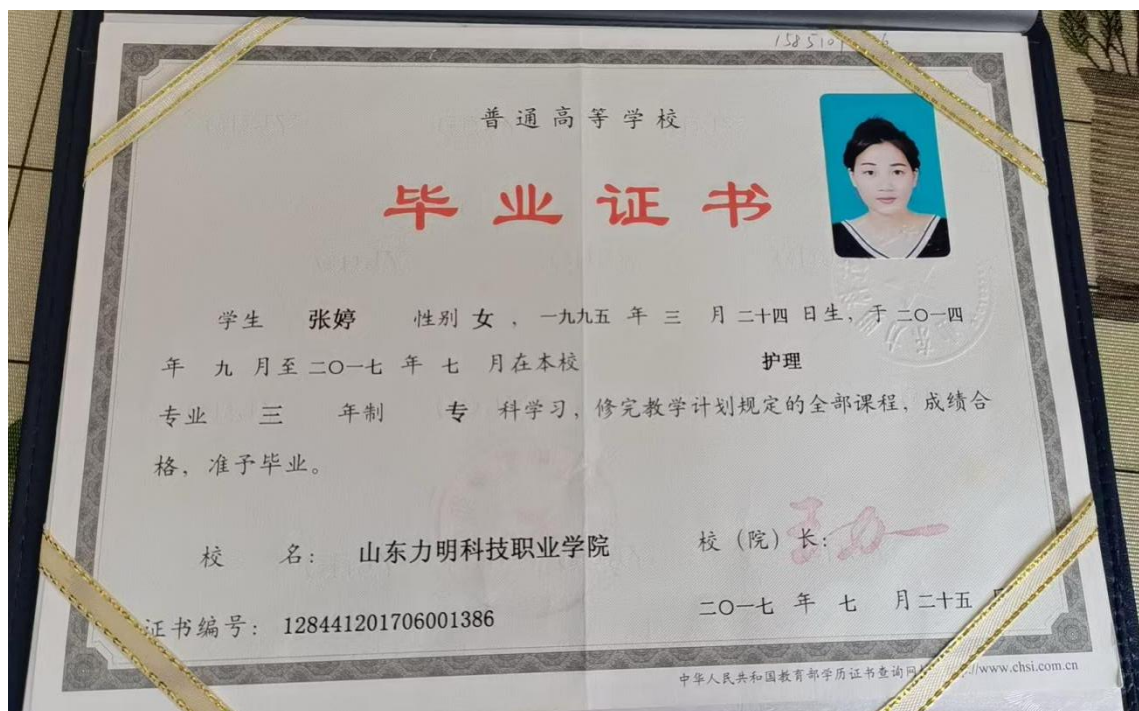 普通高等学校
毕业证书
学生 张婷 性别 女 ，一九九五 年 三 月 二十四 日生，于 二〇一四
年 九 月至 二〇一七 年 七 月在本校 护理
专业 三 年制 专 科学习，修完教学计划规定的全部课程，成绩合
格，准予毕业。
校 名： 山东力明科技职业学院 校（院）长：
证书编号： 128441201706001386 二〇一七 年 七 月 二十五
中华人民共和国教育部学历证书查询网 //www.chsi.com.cn